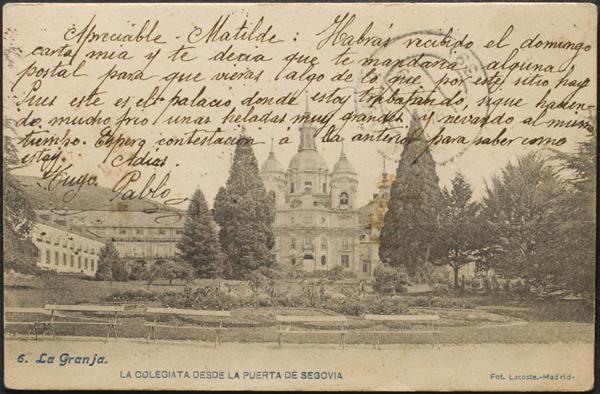 Apreciable - Matilde: Habrás recibido el domingo
carta mia y te decia que te mandaria alguna
postal para que vieras algo de lo que por este sitio hay
Pues este es el palacio, donde estoy trabajando, sigue hacien-
do, mucho frio unas heladas muy grandes y nevando al mismo
tiempo. Espero contestacion á la anterior para saber como
estas. Adios.
Tuyo. Pablo
6. La Granja.
LA COLEGIATA DESDE LA PUERTA DE SEGOVIA
Fot. Lacoste.-Madrid-